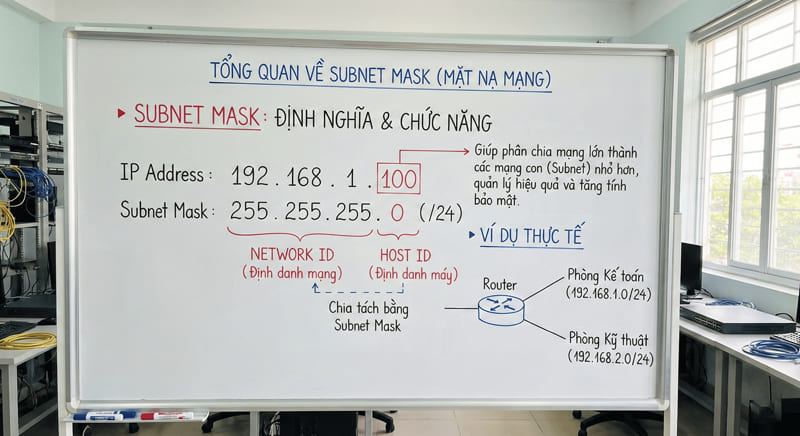 TỔNG QUAN VỀ SUBNET MASK (MẶT NẠ MẠNG)
▸ SUBNET MASK: ĐỊNH NGHĨA & CHỨC NĂNG
IP Address : 192 . 168 . 1 . 100
Subnet Mask : 255 . 255 . 255 . 0 (/24)
NETWORK ID
(Định danh mạng)
HOST ID
(Định danh máy)
Chia tách bằng
Subnet Mask
Giúp phân chia mạng lớn thành
các mạng con (Subnet) nhỏ hơn,
quản lý hiệu quả và tăng tính
bảo mật.
▸ VÍ DỤ THỰC TẾ
Router
Phòng Kế toán
(192.168.1.0/24)
Phòng Kỹ thuật
(192.168.2.0/24)